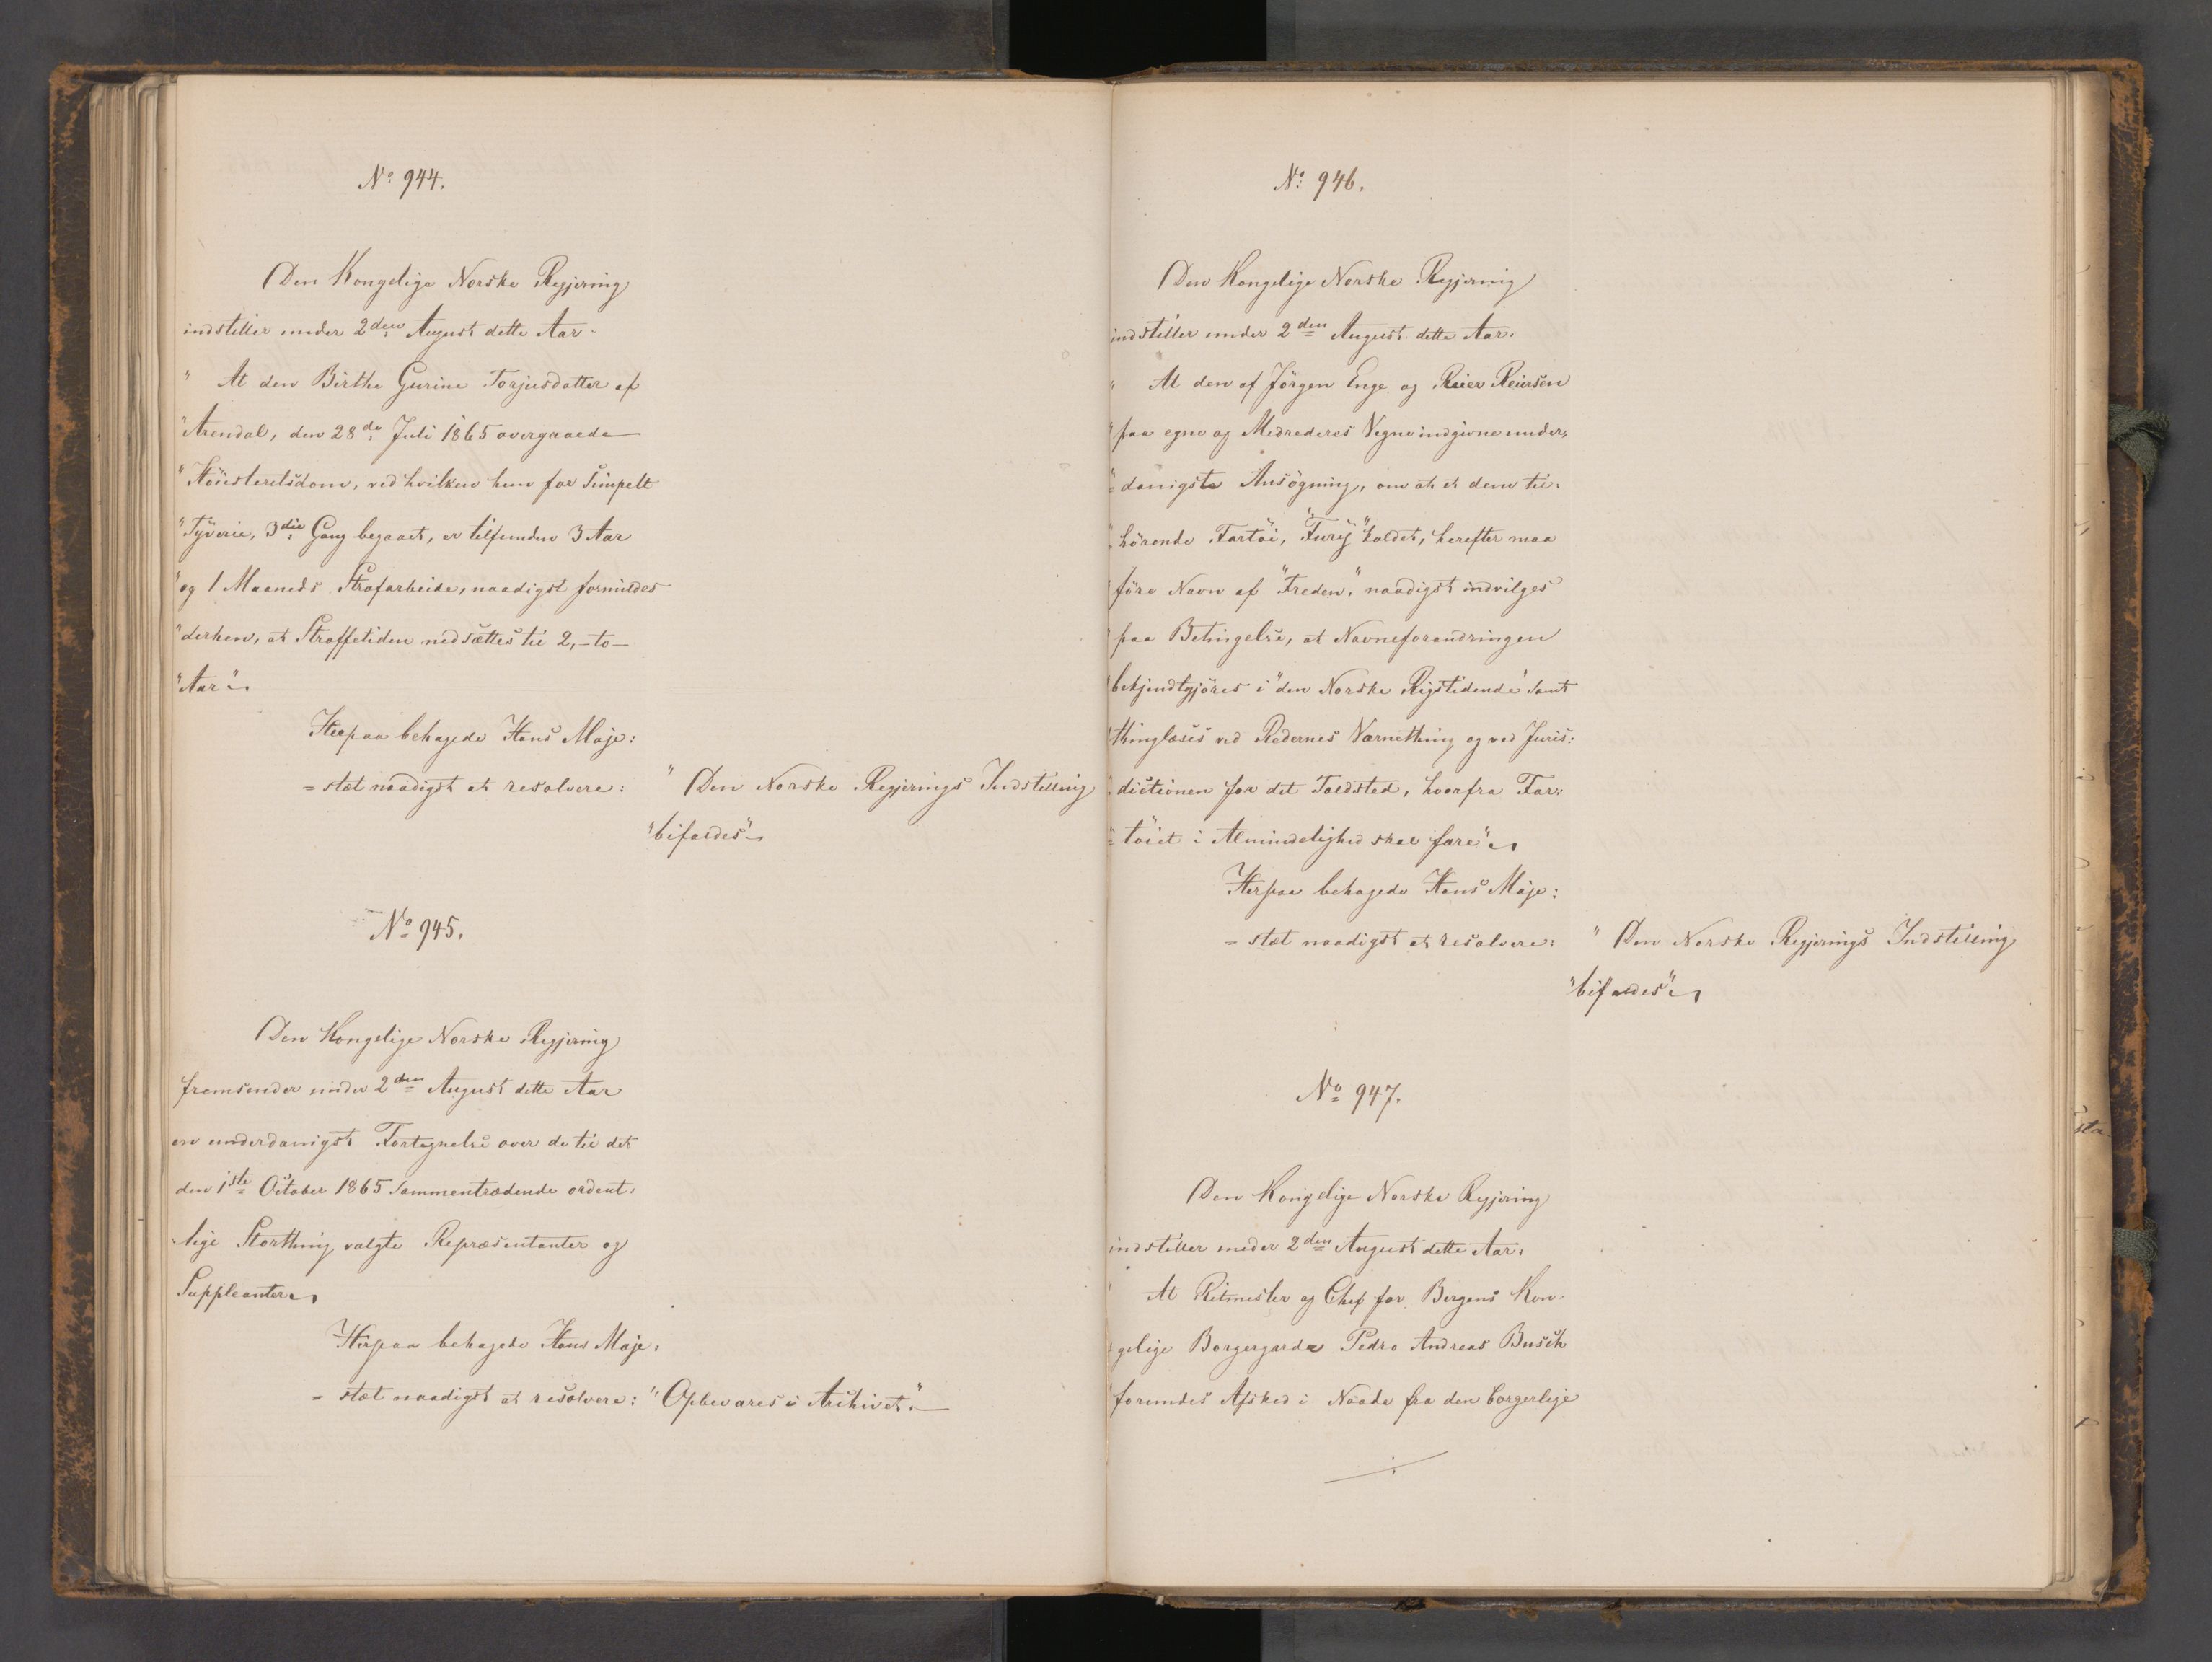 No: 944.
Den Kongelige Norske Regjering
indstiller under 2den August dette Aar.
" At den Birthe Gurine Torjusdatter af
"Arendal, den 28de Juli 1865 overgaaede
"Høiesteretsdom, ved hvilken hun for Simpelt
"Tyverie, 3die Gang begaaet, er tilfunden 3 Aar
"og 1 Maaneds Strafarbeide, naadigst formildes
"derhen, at Straffetiden nedsættes til 2,-to-
"Aar".
Herpaa behagede Hans Maje:
=stæt naadigst at resolvere: "Den Norske Regjerings Indstilling
"bifaldes".
No 945.
Den Kongelige Norske Regjering
fremsender under 2den August dette Aar
en underdanigst Fortegnelse over de til det
den 1ste October 1865 sammentrædende ordent:
lige Storthing valgte Repræsentanter og
Suppleanter.
Herpaa behagede Hans Maje:
=stæt naadigst at resolvere: "Opbevares i Archivet".
No: 946.
Den Kongelige Norske Regjering
indstiller under 2den August dette Aar.
" At den af Jörgen Enge og Reier Reiersen
"paa egne og Medrederes Vegne indgivne under=
"=danigste Ansögning, om at et dem til=
"hörende Fartöi, "Furÿ" kaldet, herefter maa
"före Navn af "Freden", naadigst indvilges
"paa Betingelse, at Navneforandringen
"bekjendtgjöres i "den Norske Rigstidende" samt
"thinglæses ved Redernes Værnething og ved Juris:
"dictionen for det Toldsted, hvorfra Far:
"=töiet i Almindelighed skal fare".
Herpaa behagede Hans Maje:
=stæt naadigst at resolvere: "Den Norske Regjerings Indstilling
"bifaldes".
No 947.
Den Kongelige Norske Regjering
indstiller under 2den August dette Aar.
" At Ritmester og Chef for Bergens Kon:
"gelige Borgergarde Pedro Andreas Busch
"forundes Afsked i Naade fra den borgerlige